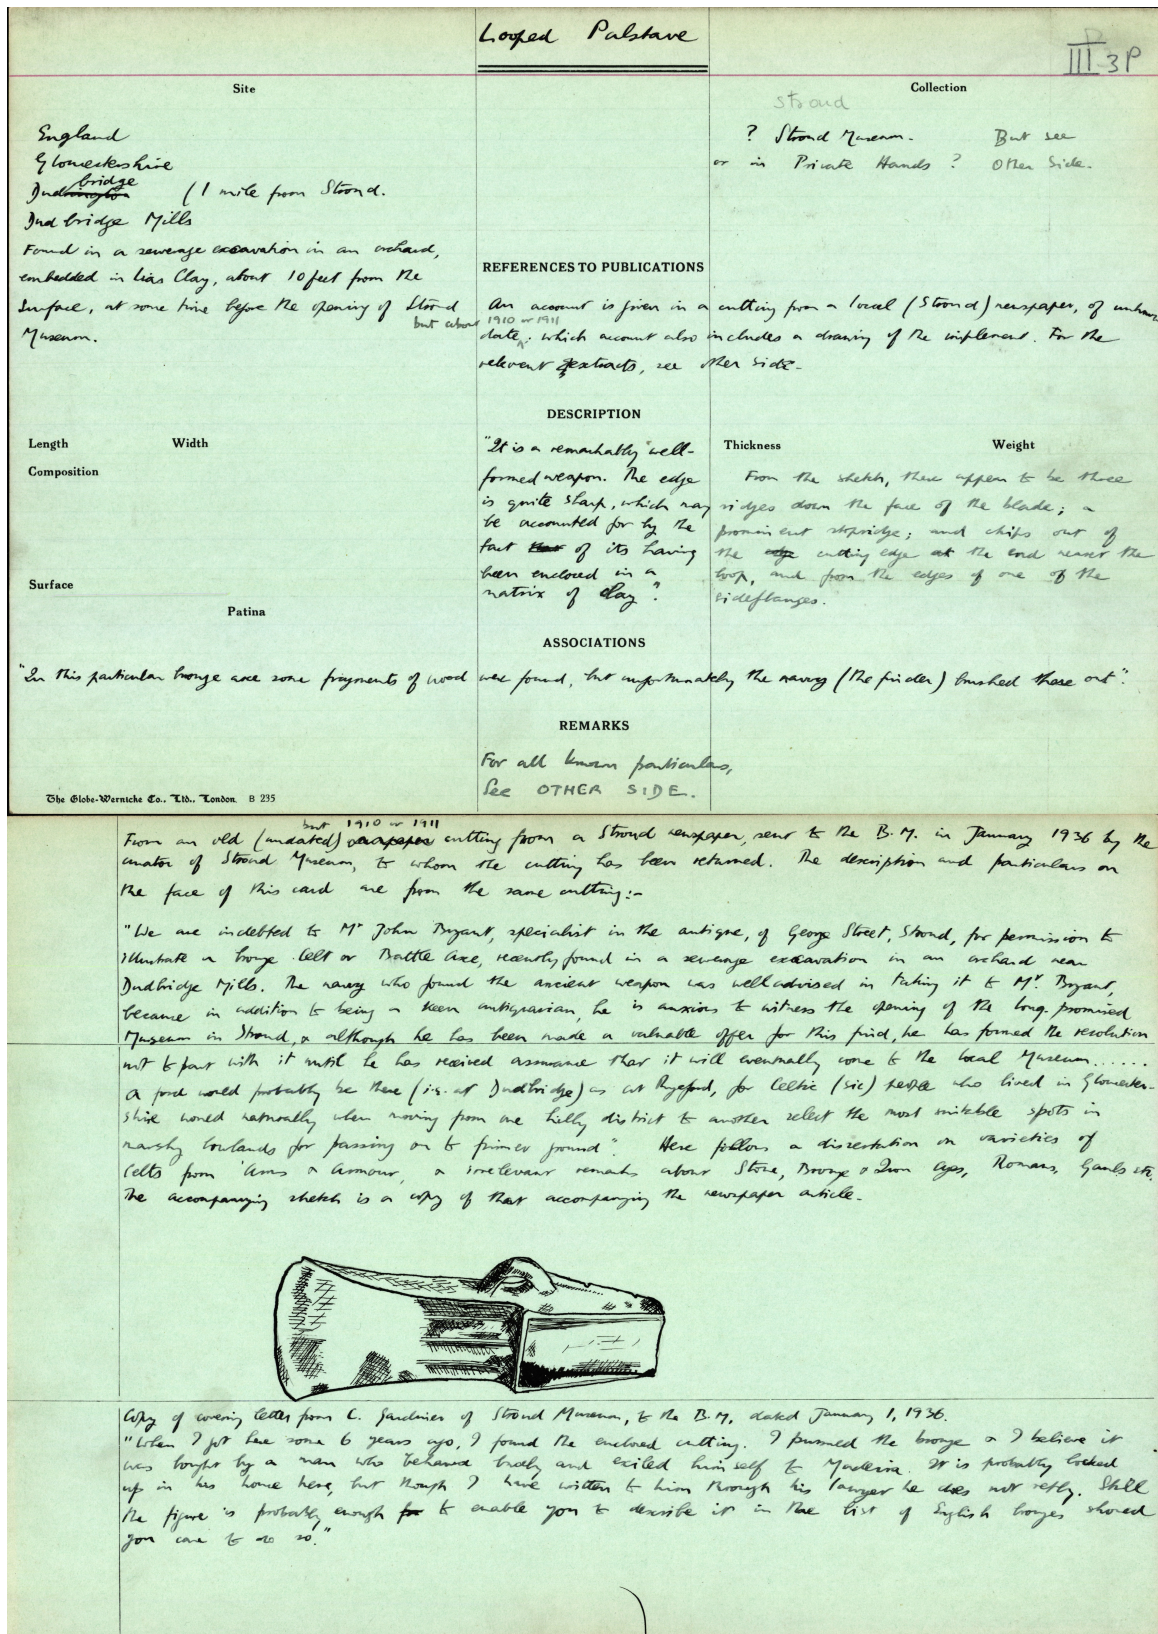 Looped Palstave
III 3P
Site
Collection
Stroud
England
Gloucestershire
Dudbridge (1 mile from Stroud.
Dudbridge Mills
? Stroud Museum. But see
or in Private Hands ? Other Side.
Found in a sewerage excavation in an orchard,
embedded in Lias Clay, about 10 feet from the
Surface, at some time before the opening of Stroud
but about 1910 or 1911
Museum.
REFERENCES TO PUBLICATIONS
An account is given in a cutting from a local (Stroud) newspaper, of unknown
date; which account also includes a drawing of the implement. For the
relevant extracts, see other side.
DESCRIPTION
Length Width
Thickness Weight
Composition
Surface
Patina
"It is a remarkably well-
formed weapon. The edge
is quite sharp, which may
be accounted for by the
fact that of its having
been enclosed in a
matrix of clay".
From the sketch, there appear to be three
ridges down the face of the blade; a
prominent stopridge; and chips out of
the edge cutting edge at the end nearest the
loop, and from the edges of one of the
sideflanges.
ASSOCIATIONS
"In this particular bronze axe some fragments of wood were found, but unfortunately the navvy (the finder) brushed these out".
REMARKS
For all known particulars,
See OTHER SIDE.
The Globe-Wernicke Co., Ltd., London. B 235
but 1910 or 1911
From an old (undated) newspaper cutting from a Stroud newspaper, sent to the B.M. in January 1936 by the
curator of Stroud Museum, to whom the cutting has been returned. The description and particulars on
the face of this card are from the same cutting:-
"We are indebted to Mr John Bryant, specialist in the antique, of George Street, Stroud, for permission to
illustrate a bronze Celt or Battle Axe, recently found in a sewerage excavation in an orchard near
Dudbridge Mills. The navvy who found the ancient weapon was well advised in taking it to Mr. Bryant,
because in addition to being a keen antiquarian, he is anxious to witness the opening of the long-promised
Museum in Stroud, & although he has been made a valuable offer for this find, he has formed the resolution
not to part with it until he has received assurance that it will eventually come to the local Museum......
A ford would probably be there (i.e. at Dudbridge) as at Ryeford, for Celtic (sic) people who lived in Gloucester-
shire would naturally when moving from one hilly district to another select the most suitable spots in
marshy lowlands for passing on to firmer ground". Here follows a dissertation on varieties of
Celts from 'Arms & Armour', & irrelevant remarks about Stone, Bronze & Iron Ages, Romans, Gauls etc.
The accompanying sketch is a copy of that accompanying the newspaper article.
Copy of covering letter from C. Gardiner of Stroud Museum, to the B.M. dated January 1, 1936.
"When I got here some 6 years ago, I found the enclosed cutting. I pursued the bronze & I believe it
was bought by a man who behaved badly and exiled himself to Madeira. It is probably locked
up in his house here, but though I have written to him through his lawyer he does not reply. Still
the figure is probably enough for to enable you to describe it in the list of English bronzes should
you care to do so."